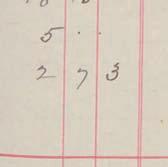 5 . .
2 7 3